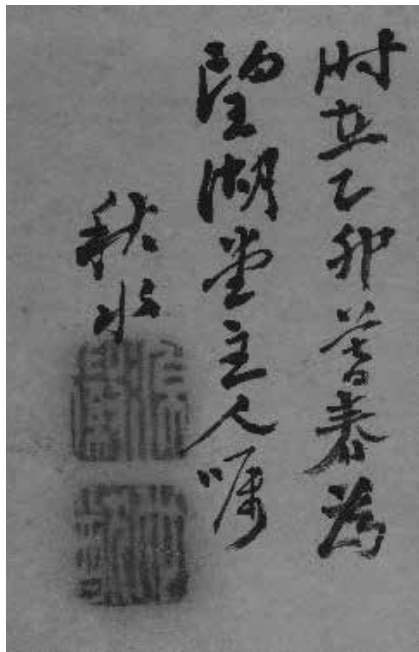 时在乙卯暮春为
望湖堂主人嘱
秋水